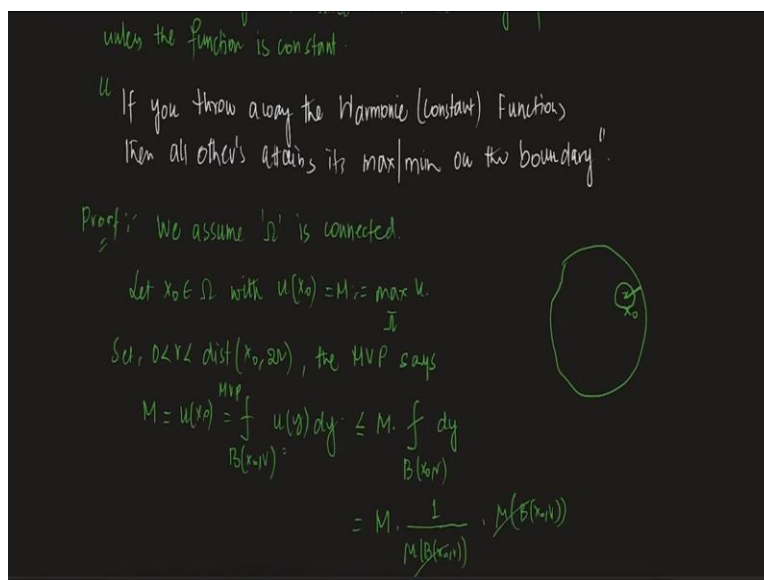 unless the function is constant.
" If you throw away the Harmonic (constant) Functions
then all other's attains its max/min on the boundary".
Proof:- We assume 'Ω' is connected.
Let x₀ ∈ Ω with u(x₀) = M := max u.
Ω̄
x₀
Set, 0<r< dist(x₀, ∂Ω), the MVP says
MVP
M = u(x₀) = ⨍ u(y) dy ≤ M. ⨍ dy
B(x₀,r) = B(x₀,r)
= M. 1/μ(B(x₀,r)) . μ(B(x₀,r))